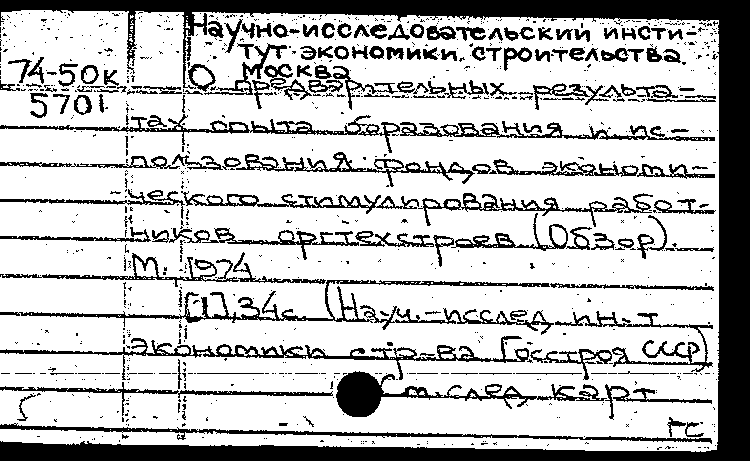 Научно-исследовательский инсти-
тут экономики строительства.
Москва
74-50к
5701
О предварительных результа-
тах опыта образования и ис-
пользования фондов экономи-
ческого стимулирования работ-
ников оргтехстроев (Обзор).
М. 1974
[1], 34с. (Науч.-исслед ин-т
экономики стр-ва Госстроя СССР)
См. след карт